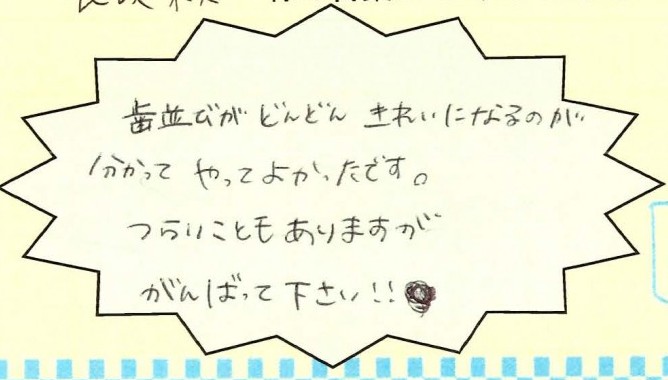 歯並びがどんどんきれいになるのが
分かってやってよかったです。
つらいこともありますが
がんばって下さい!!